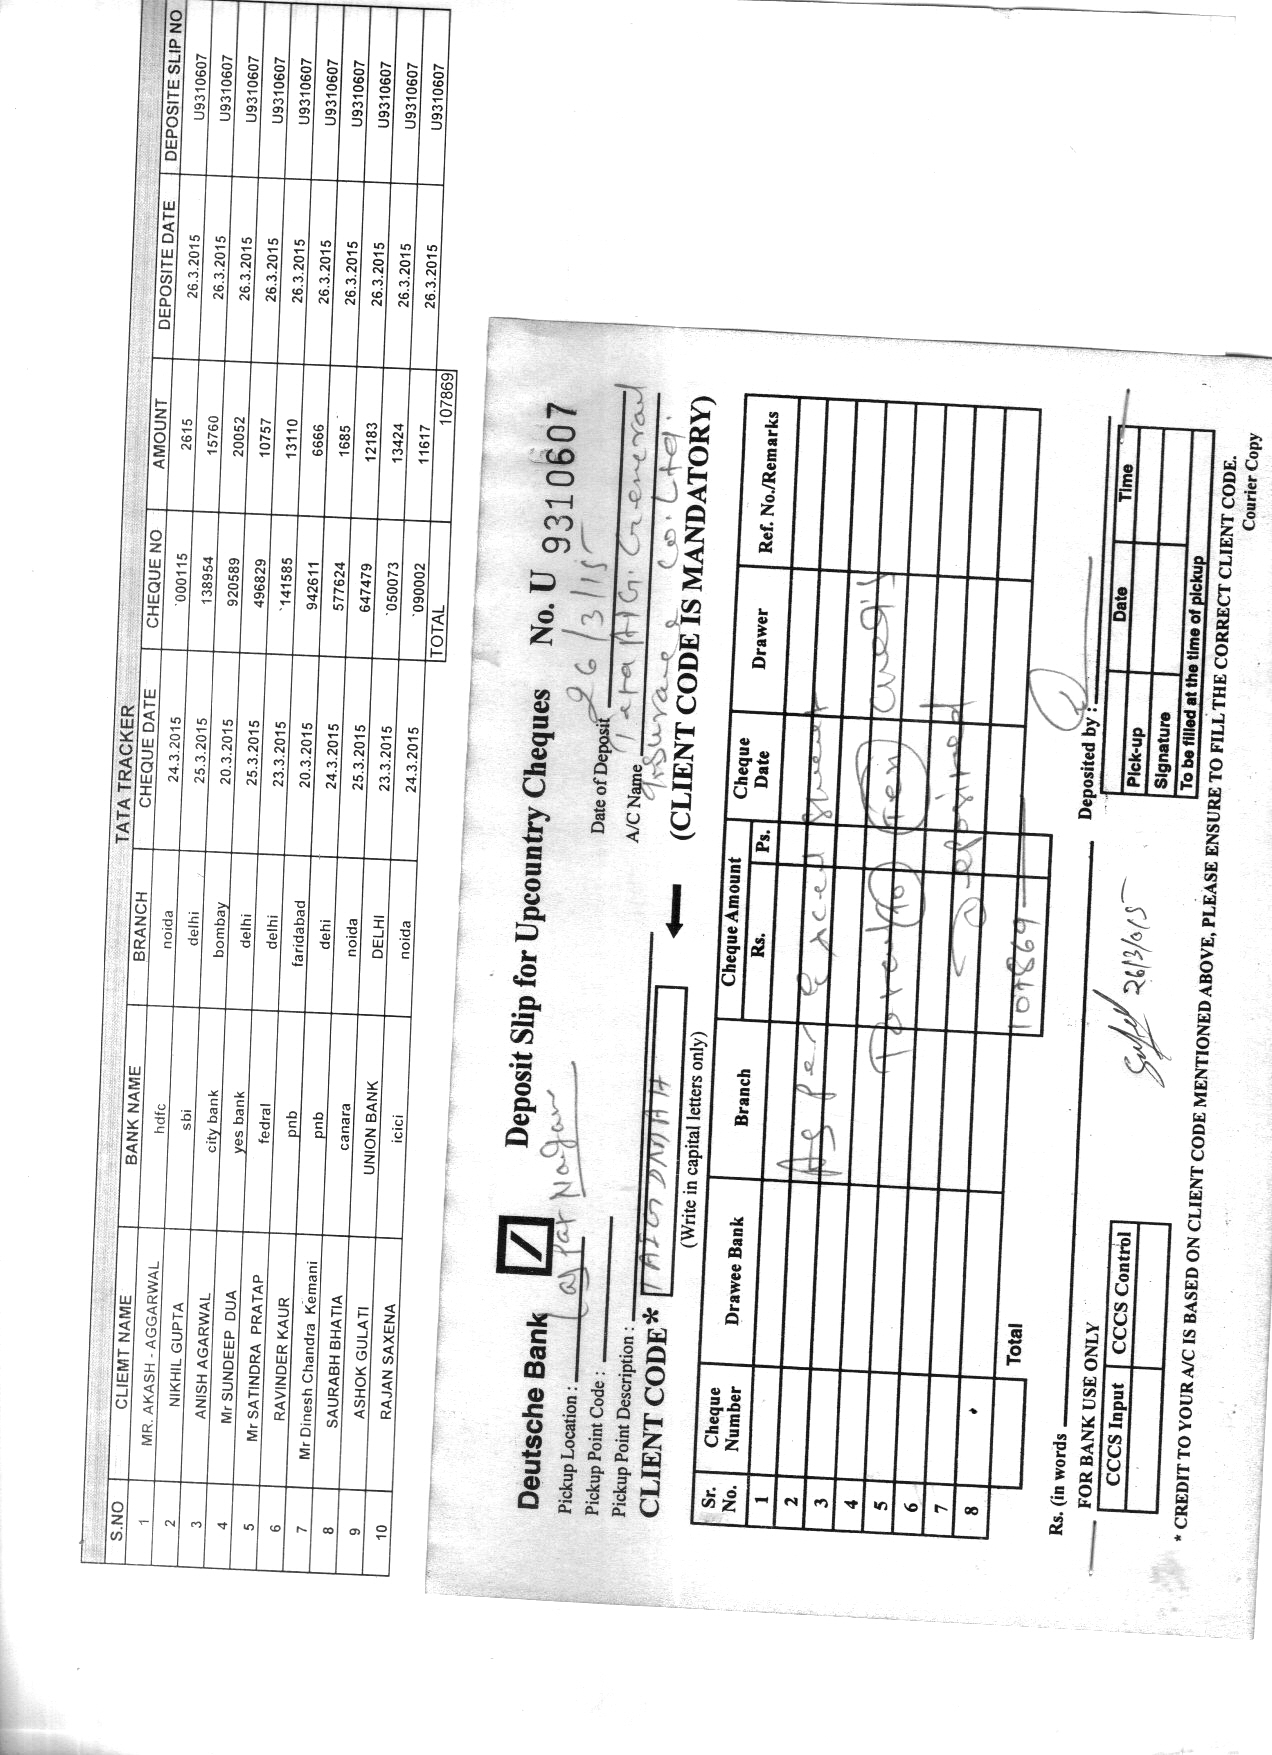 TATA TRACKER
S.NO CLIEMT NAME BANK NAME BRANCH CHEQUE DATE CHEQUE NO AMOUNT DEPOSITE DATE DEPOSITE SLIP NO
1 MR. AKASH - AGGARWAL hdfc noida 24.3.2015 `000115 2615 26.3.2015 U9310607
2 NIKHIL GUPTA sbi delhi 25.3.2015 138954 15760 26.3.2015 U9310607
3 ANISH AGARWAL city bank bombay 20.3.2015 920589 20052 26.3.2015 U9310607
4 Mr SUNDEEP DUA yes bank delhi 25.3.2015 496829 10757 26.3.2015 U9310607
5 Mr SATINDRA PRATAP fedral delhi 23.3.2015 `141585 13110 26.3.2015 U9310607
6 RAVINDER KAUR pnb faridabad 20.3.2015 942611 6666 26.3.2015 U9310607
7 Mr Dinesh Chandra Kemani pnb dehi 24.3.2015 577624 1685 26.3.2015 U9310607
8 SAURABH BHATIA canara noida 25.3.2015 647479 12183 26.3.2015 U9310607
9 ASHOK GULATI UNION BANK DELHI 23.3.2015 `050073 13424 26.3.2015 U9310607
10 RAJAN SAXENA icici noida 24.3.2015 `090002 11617 26.3.2015 U9310607
TOTAL 107869
Deutsche Bank Deposit Slip for Upcountry Cheques No. U 9310607
Pickup Location : Lajpat Nagar Date of Deposit 26/3/15
Pickup Point Code : A/C Name Tata AIG General
Pickup Point Description : Insurance Co. Ltd.
CLIENT CODE* TAIGDMAH (CLIENT CODE IS MANDATORY)
(Write in capital letters only)
Sr. No. Cheque Number Drawee Bank Branch Cheque Amount Rs. Ps. Cheque Date Drawer Ref. No./Remarks
1
2
3 As per Excel sheet
4
5 Total (10) (Ten) cheq's
6
7 Deposited
8
Total 107869
Rs. (in words Deposited by :
FOR BANK USE ONLY
CCCS Input CCCS Control
26/3/015
Pick-up Date Time
Signature
To be filled at the time of pickup
* CREDIT TO YOUR A/C IS BASED ON CLIENT CODE MENTIONED ABOVE, PLEASE ENSURE TO FILL THE CORRECT CLIENT CODE.
Courier Copy